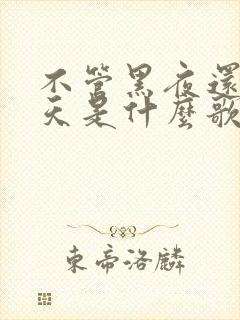 不管黑夜還
天是什麼歌
東帝洛麟